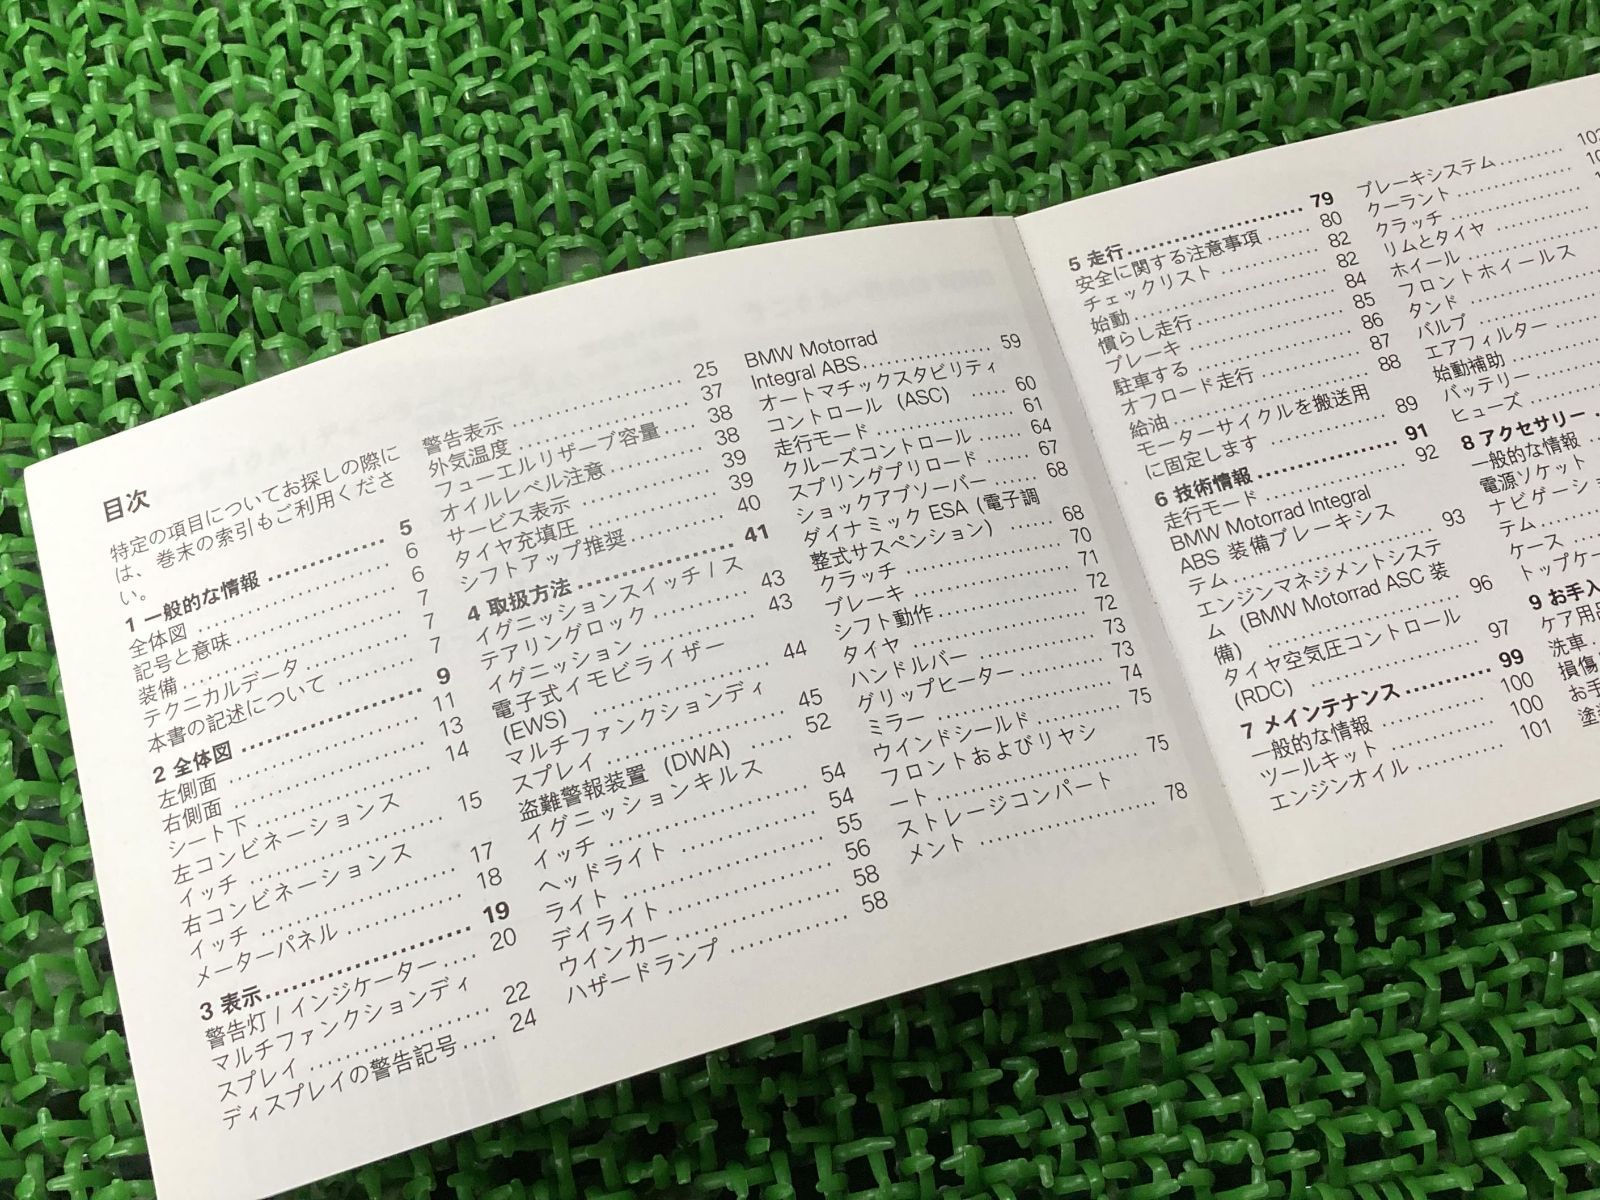 目次
特定の項目についてお探しの際に
は、巻末の索引もご利用くださ
い。
1 一般的な情報 5
全体図 6
記号と意味 6
装備 7
テクニカルデータ 7
本書の記述について 7
2 全体図 9
左側面 11
右側面 13
シート下 14
左コンビネーションス
イッチ 15
右コンビネーションス
イッチ 17
メーターパネル 18
3 表示 19
警告灯 / インジケーター 20
マルチファンクションディ
スプレイ 22
ディスプレイの警告記号 24
警告表示 25
外気温度 37
フューエルリザーブ容量 38
オイルレベル注意 38
サービス表示 39
タイヤ充填圧 39
シフトアップ推奨 40
4 取扱方法 41
イグニッションスイッチ / ス
テアリングロック 43
イグニッション 43
電子式イモビライザー
(EWS) 44
マルチファンクションディ
スプレイ 45
盗難警報装置 (DWA) 52
イグニッションキルス
イッチ 54
ヘッドライト 54
ライト 55
デイライト 56
ウインカー 58
ハザードランプ 58
BMW Motorrad
Integral ABS 59
オートマチックスタビリティ
コントロール (ASC) 60
走行モード 61
クルーズコントロール 64
スプリングプリロード 67
ショックアブソーバー 68
ダイナミック ESA (電子調
整式サスペンション) 68
クラッチ 70
ブレーキ 71
シフト動作 72
タイヤ 72
ハンドルバー 73
グリップヒーター 73
ミラー 74
ウインドシールド 75
フロントおよびリヤシ
ート 75
ストレージコンパート
メント 78
5 走行 79
安全に関する注意事項 80
チェックリスト 82
始動 82
慣らし走行 84
ブレーキ 85
駐車する 86
オフロード走行 87
給油 88
モーターサイクルを搬送用
に固定します 89
6 技術情報 91
走行モード 92
BMW Motorrad Integral
ABS 装備ブレーキシス
テム 93
エンジンマネジメントシステ
ム (BMW Motorrad ASC 装
備) 96
タイヤ空気圧コントロール
(RDC) 97
7 メインテナンス 99
一般的な情報 100
ツールキット 100
エンジンオイル 101
ブレーキシステム
クーラント
クラッチ
リムとタイヤ
ホイール
フロントホイールス
タンド
バルブ
エアフィルター
始動補助
バッテリー
ヒューズ
8 アクセサリー
一般的な情報
電源ソケット
ナビゲーショ
テム
ケース
トップケー
9 お手入
ケア用品
洗車
損傷
お手